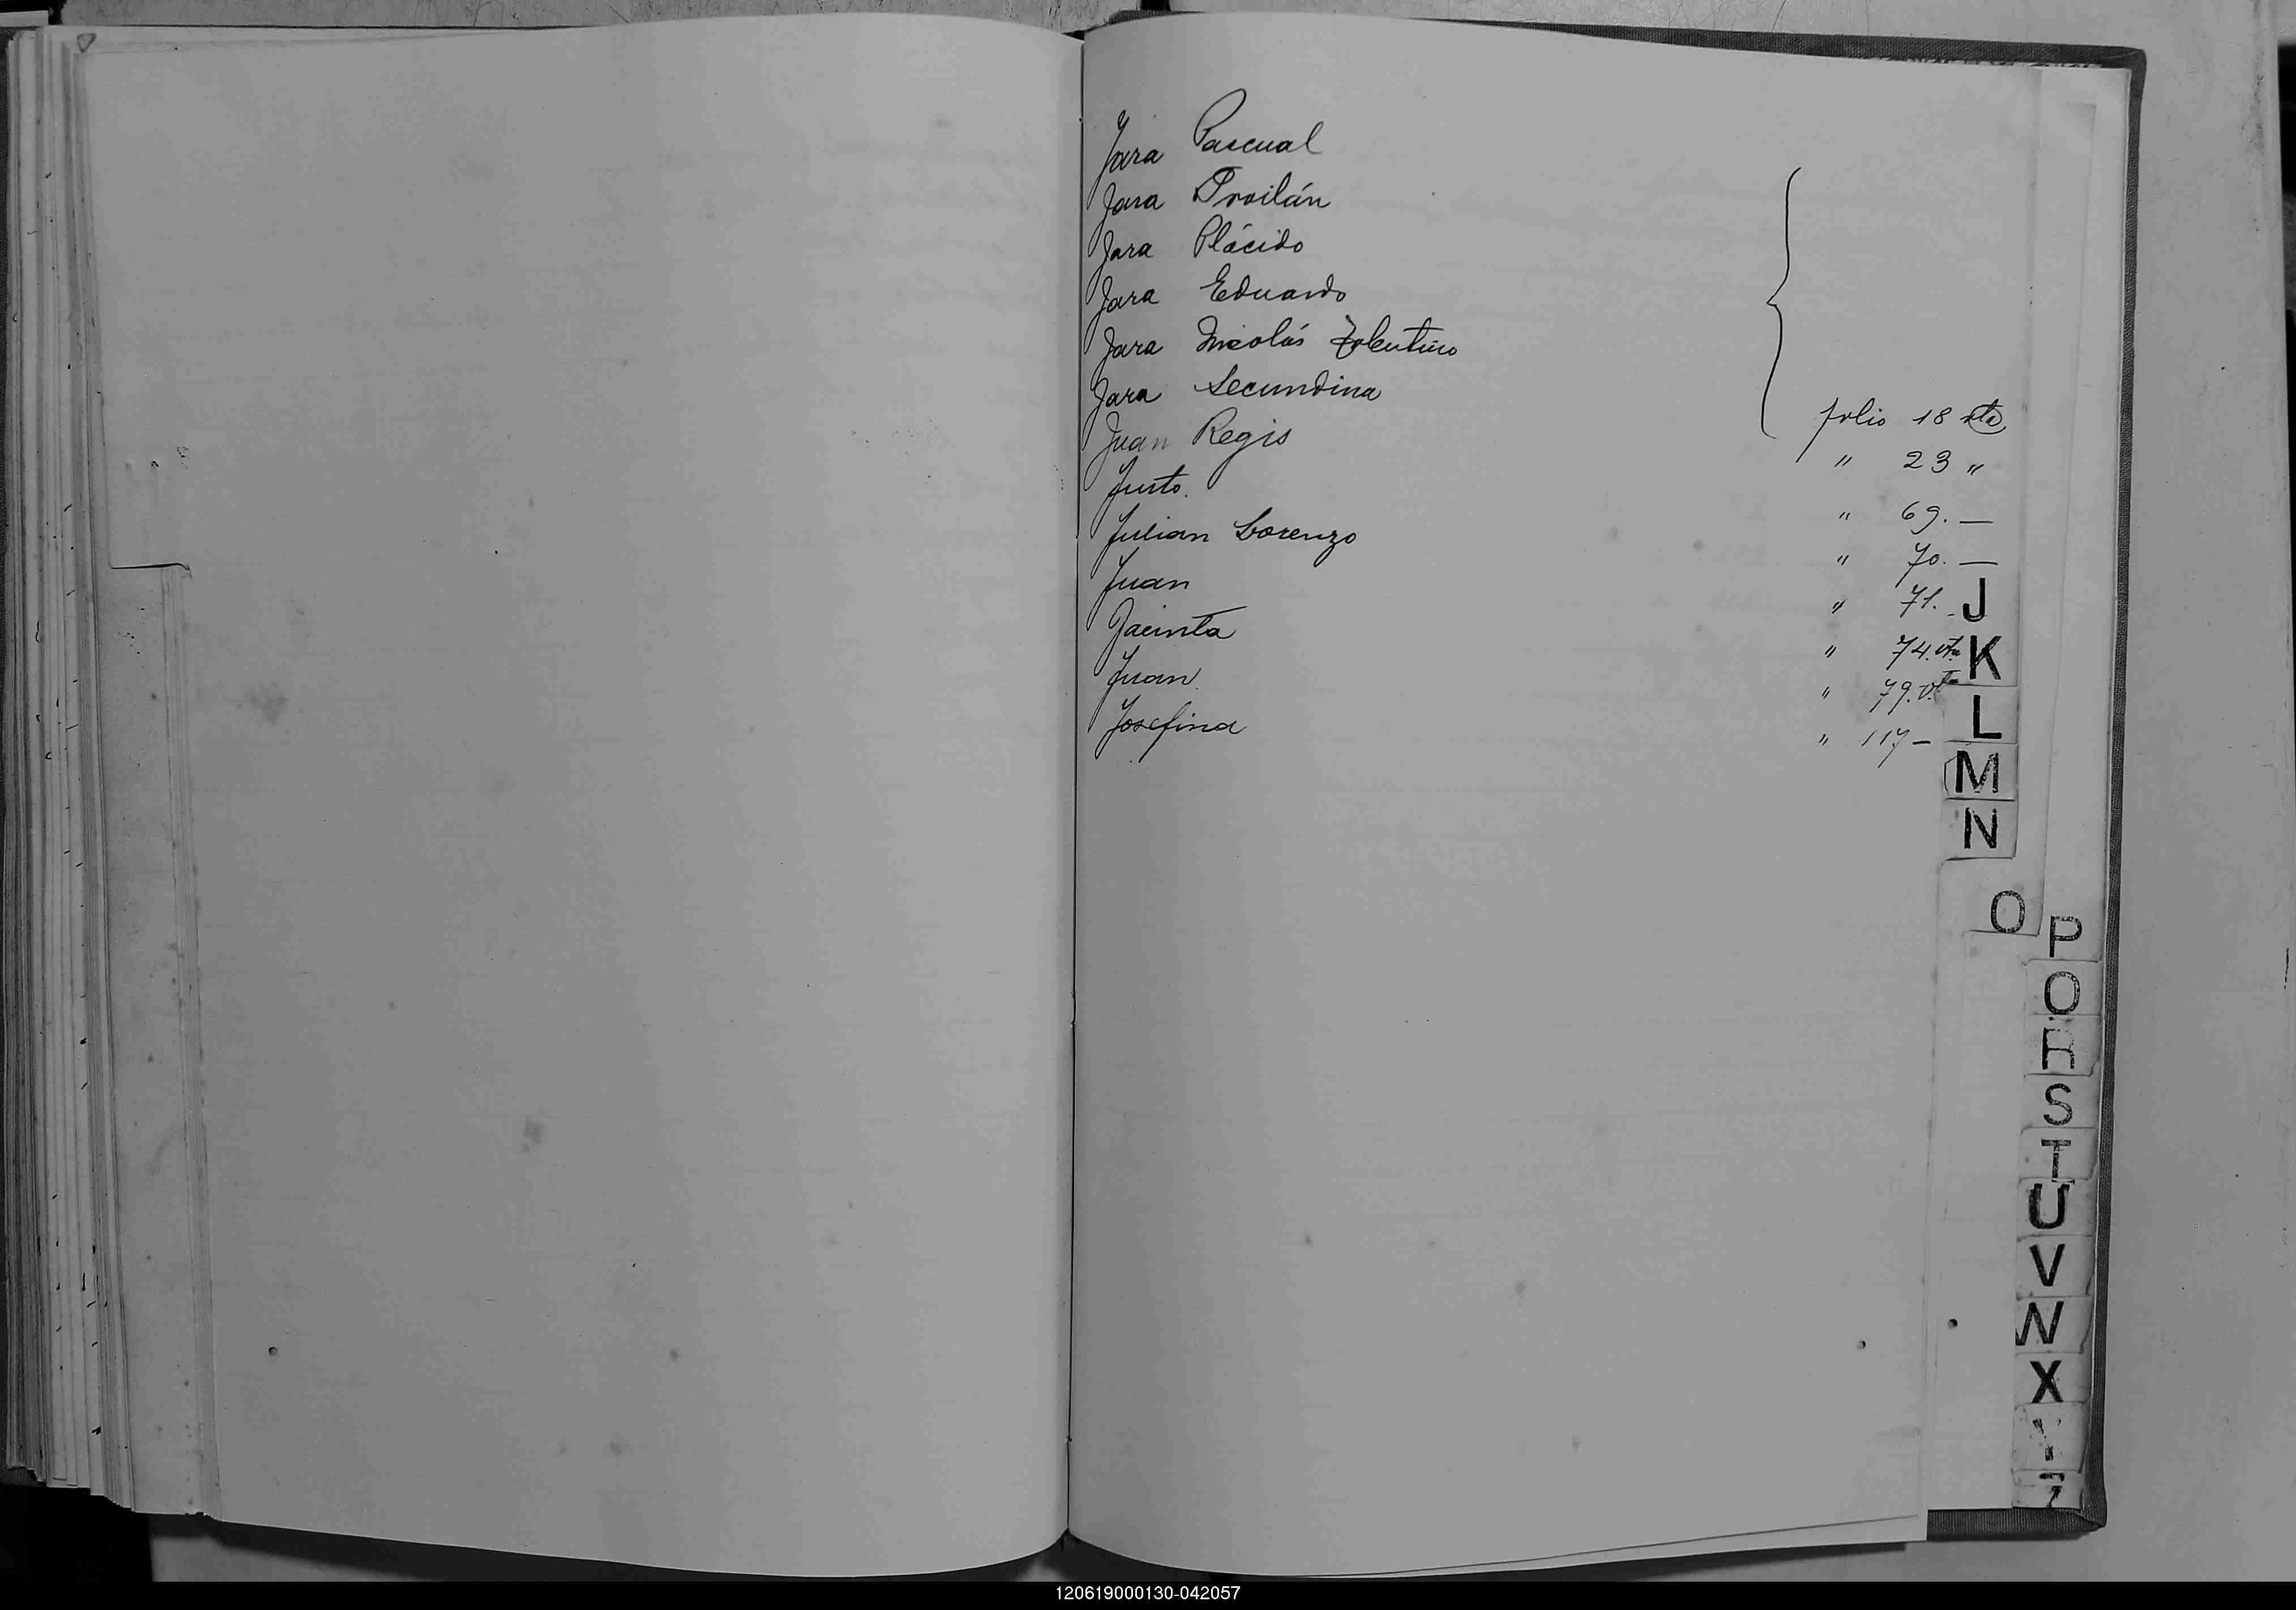 Jara Pascual
Jara Froilán
Jara Plácido
Jara Eduardo
Jara Nicolás Tolentino
Jara Secundina folio 18 vta
Juan Regis " 23 "
Justo. " 69. —
Julian Lorenzo " 70. —
Juan " 71. -
Jacinta " 74. vta.
Juan. " 79. vta
Josefina " 117 —
J
K
L
M
N
O
P
Q
R
S
T
U
V
W
X
Y
Z
120619000130-042057